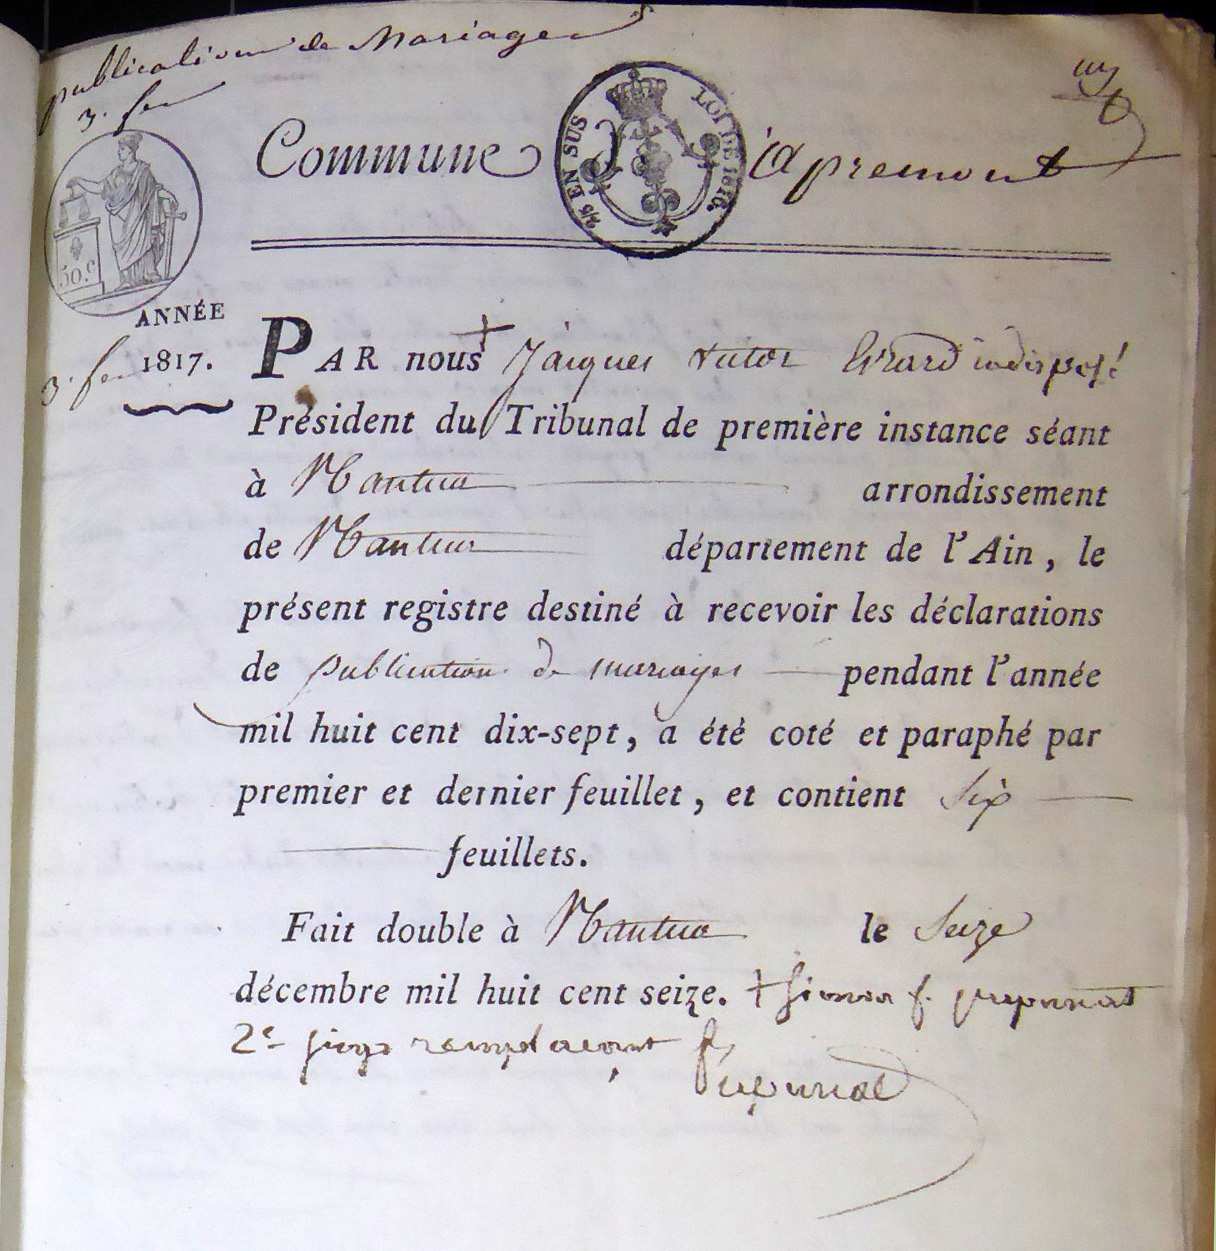 publication de Mariages
3. feu
Commune d'apremont
2/5 EN SUS
LOI DE 1816.
50.c
ANNÉE
1817.
3. feu
PAR nous + Jacques victor Girard indisposé
Président du Tribunal de première instance séant
à Nantua arrondissement
de Nantua département de l'Ain, le
présent registre destiné à recevoir les déclarations
de publication de mariages pendant l'année
mil huit cent dix-sept, a été coté et paraphé par
premier et dernier feuillet, et contient Six
feuillets.
Fait double à Nantua le Seize
décembre mil huit cent seize. +
2e juge remplaçant